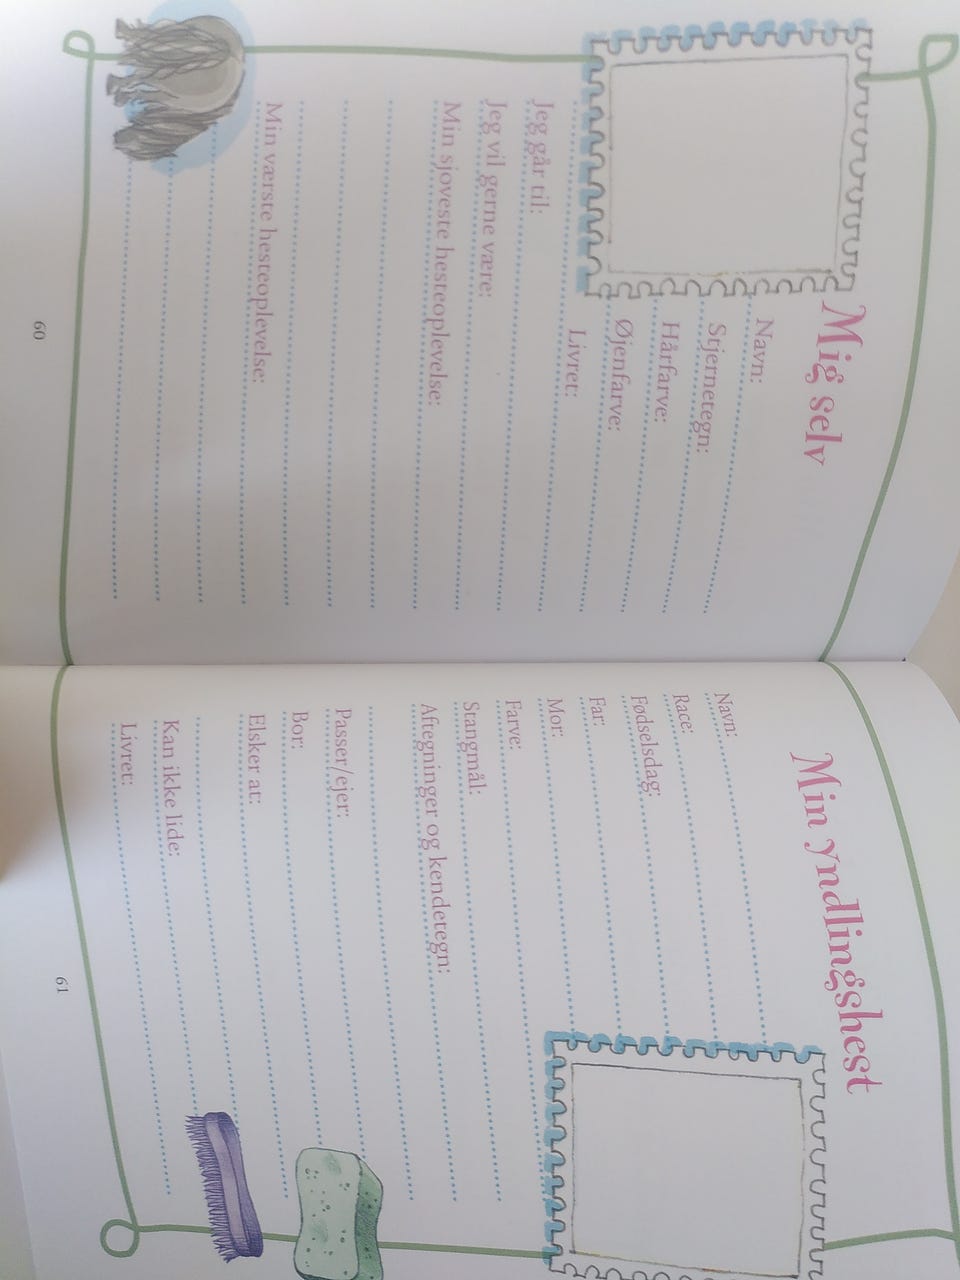 Mig selv
Navn:
Stjernetegn:
Hårfarve:
Øjenfarve:
Livret:
Jeg går til:
Jeg vil gerne være:
Min sjoveste hesteoplevelse:
Min værste hesteoplevelse:
60
Min yndlingshest
Navn:
Race:
Fødselsdag:
Far:
Mor:
Farve:
Stangmål:
Aftegninger og kendetegn:
Passer/ejer:
Bor:
Elsker at:
Kan ikke lide:
Livret:
61